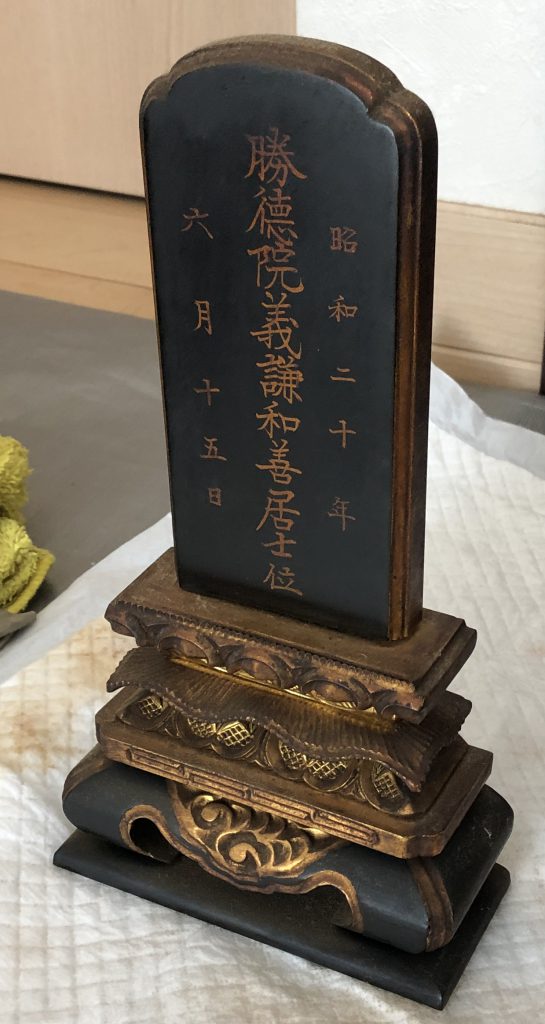 昭和二十年
勝徳院義謙和善居士位
六月十五日